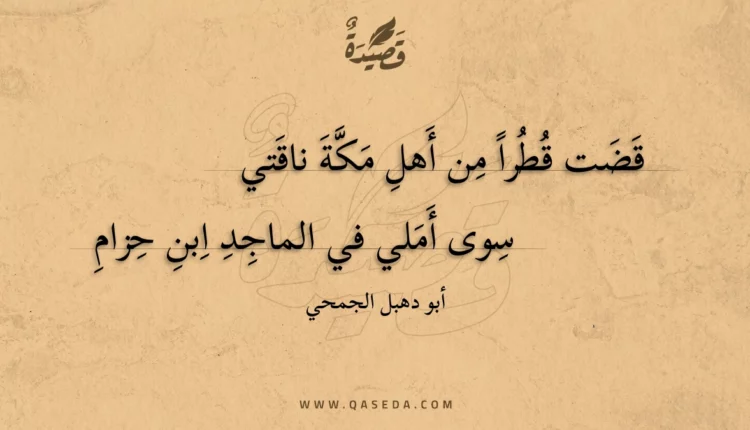 قَصِيْدَةٌ
قَضَت قُطُراً مِن أَهلِ مَكَّةَ ناقَتي
سِوى أَمَلي في الماجِدِ اِبنِ حِزامِ
أبو دهبل الجمحي
WWW.QASEDA.COM